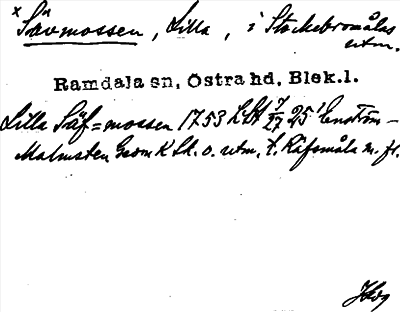 × Sävmossen, Lilla, i Stockebromåla
utm.
Ramdala sn, Östra hd, Blek.l.
Lilla Säf=mossen 1753 LSA 7/27 25' Enström-
Malmsten Geom K Sk. o. utm. t. Räfsmåla m. fl.